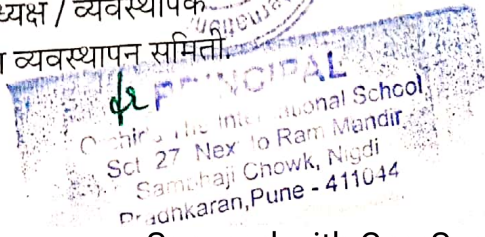 ध्यक्ष / व्यवस्थापक
व्यवस्थापन समिती.
PRINCIPAL
The International School
Sct 27 Next to Ram Mandir,
Sambhaji Chowk, Nigdi
Pradhikaran, Pune - 411044